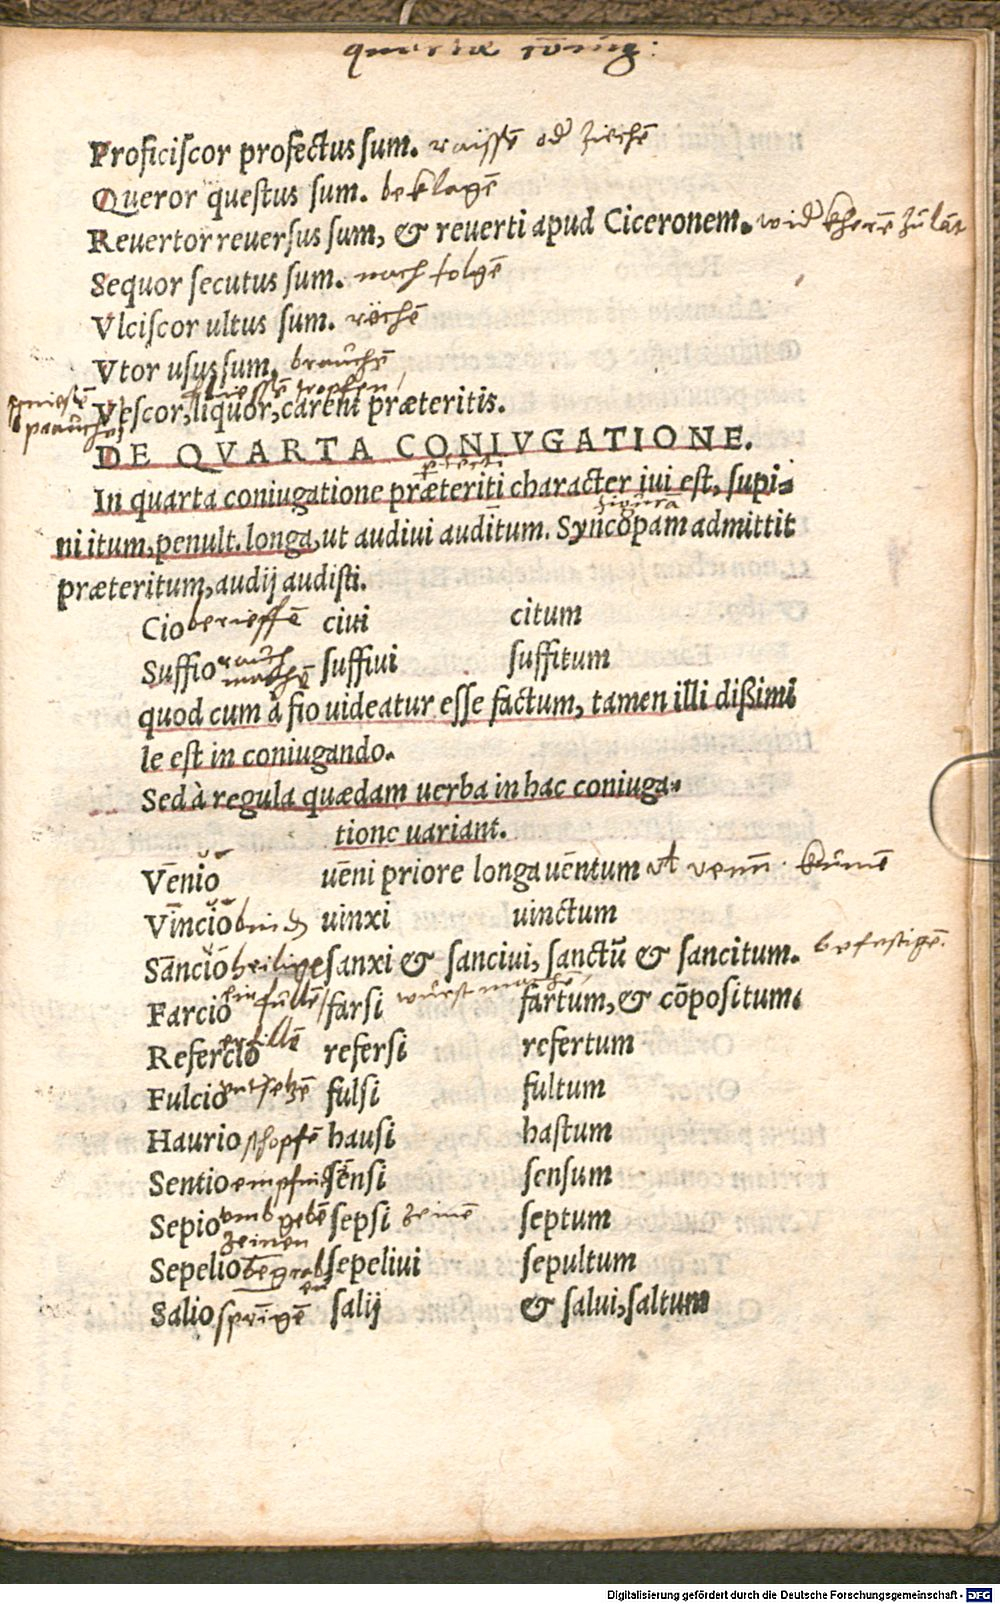 quarta
Proficiscor profectus sum. raissē odr ziechē
Queror questus sum. beklagē
Reuertor reuersus sum, & reuerti apud Ciceronem. widr kherē
Sequor secutus sum. nach folgē
Vlciscor ultus sum. rechē
Vtor usus sum. brauchē
Vescor, liquor, carent præteritis.
DE QVARTA CONIVGATIONE.
In quarta coniugatione præteriti character iui est, supi-
ni itum, penult. longa, ut audiui auditum. Syncopam admittit
præteritum, audij audisti.
Cio berieffē ciui citum
Suffio rauch machē suffiui suffitum
quod cum à fio uideatur esse factum, tamen illi dißimi
le est in coniugando.
Sed à regula quædam uerba in hac coniuga-
tione uariant.
Venio uēni priore longa uentum kumē
Vincio uinxi uinctum
Sancio heilige sanxi & sanciui, sanctū & sancitum. befestigē.
Farcio fullē farsi wurst machē fartum, & cōpositum.
Refercio erfillē refersi refertum
Fulcio fulsi fultum
Haurio schopfē hausi haustum
Sentio sensi sensum
Sepio vmb gebē zeinen sepsi zeinē septum
Sepelio begraben sepeliui sepultum
Salio springē salij & salui, saltum
Digitalisierung gefördert durch die Deutsche Forschungsgemeinschaft - DFG